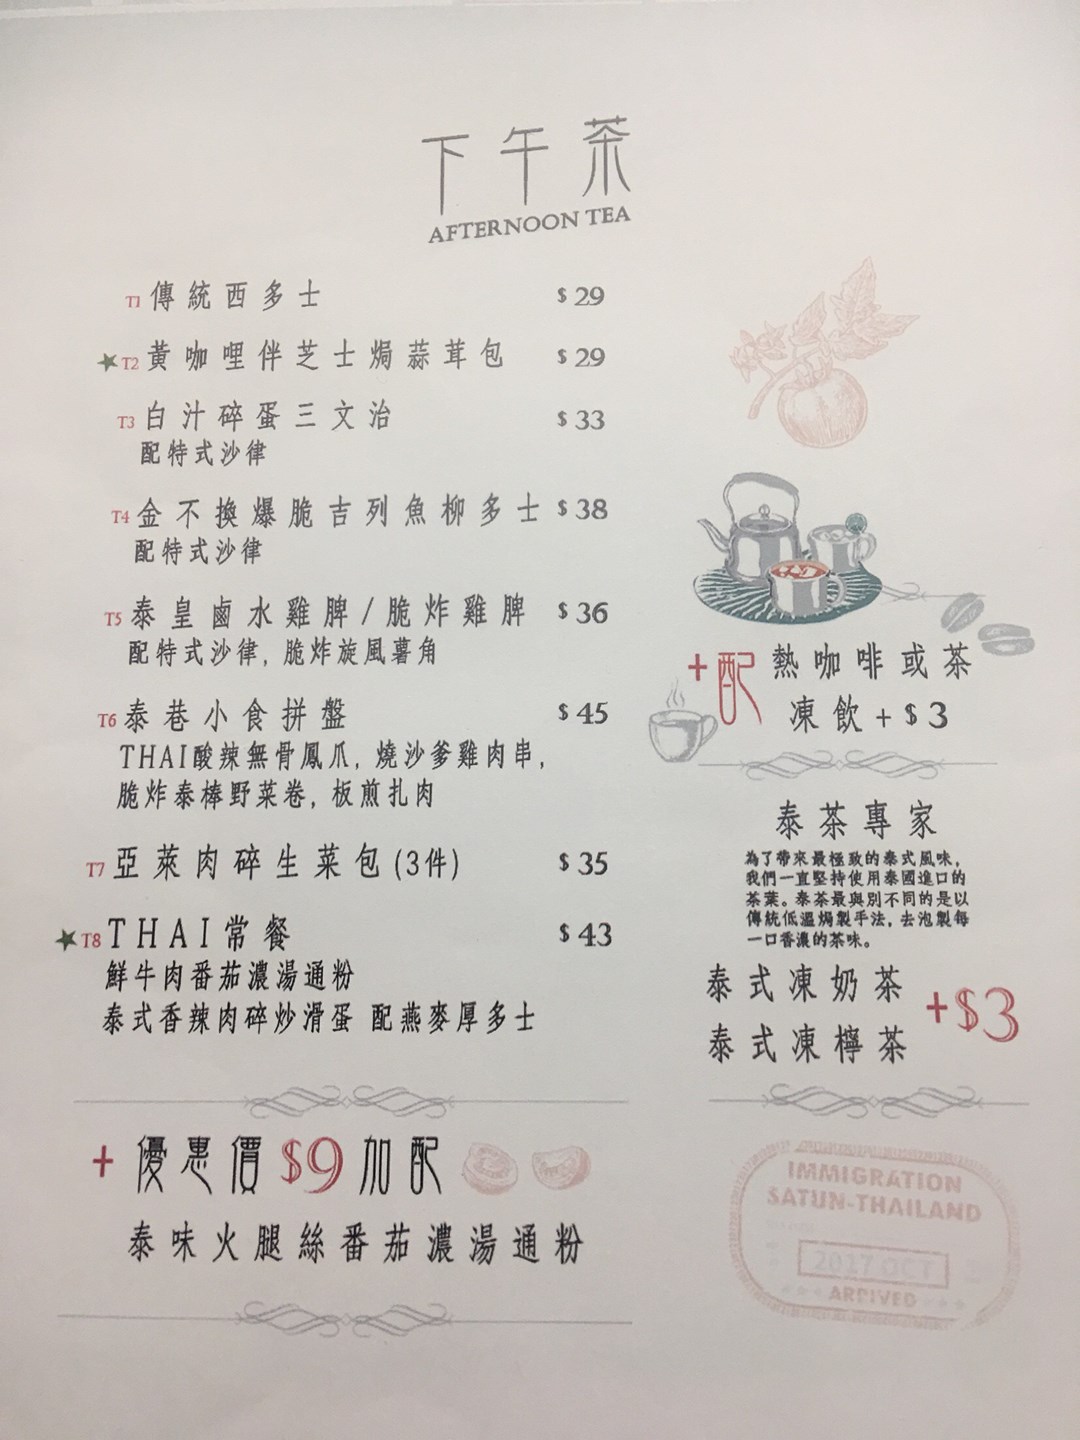 下午茶
AFTERNOON TEA
T1 傳統西多士 $29
★T2 黃咖哩伴芝士焗蒜茸包 $29
T3 白汁碎蛋三文治 $33
配特式沙律
T4 金不換爆脆吉列魚柳多士 $38
配特式沙律
T5 泰皇鹵水雞脾/脆炸雞脾 $36
配特式沙律, 脆炸旋風薯角
T6 泰巷小食拼盤 $45
THAI酸辣無骨鳳爪, 燒沙爹雞肉串,
脆炸泰棒野菜卷, 板煎扎肉
T7 亞萊肉碎生菜包(3件) $35
★T8 THAI常餐 $43
鮮牛肉番茄濃湯通粉
泰式香辣肉碎炒滑蛋 配燕麥厚多士
+ 優惠價$9加配
泰味火腿絲番茄濃湯通粉
+配 熱咖啡或茶
凍飲+$3
泰茶專家
為了帶來最極致的泰式風味,
我們一直堅持使用泰國進口的
茶葉。泰茶最與別不同的是以
傳統低溫焗製手法, 去泡製每
一口香濃的茶味。
泰式凍奶茶
+$3
泰式凍檸茶
IMMIGRATION
SATUN-THAILAND
2017 OCT
ARRIVED